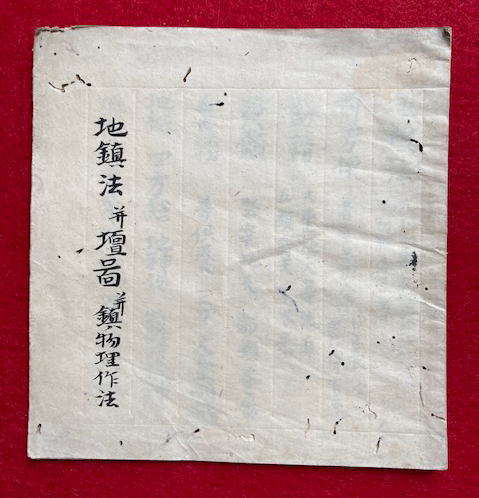 地鎮法并壇啚并鎮物理作法